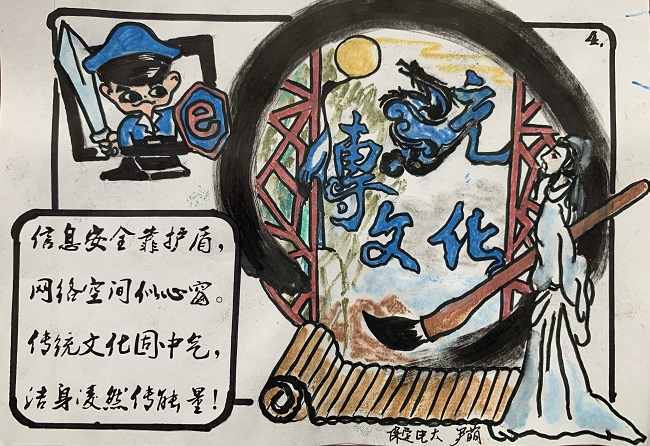 4.
傳統
文化
信息安全靠护盾，
网络空间似心窗。
传统文化固中气，
洁身凌然传能量！
保定电大 尹萌